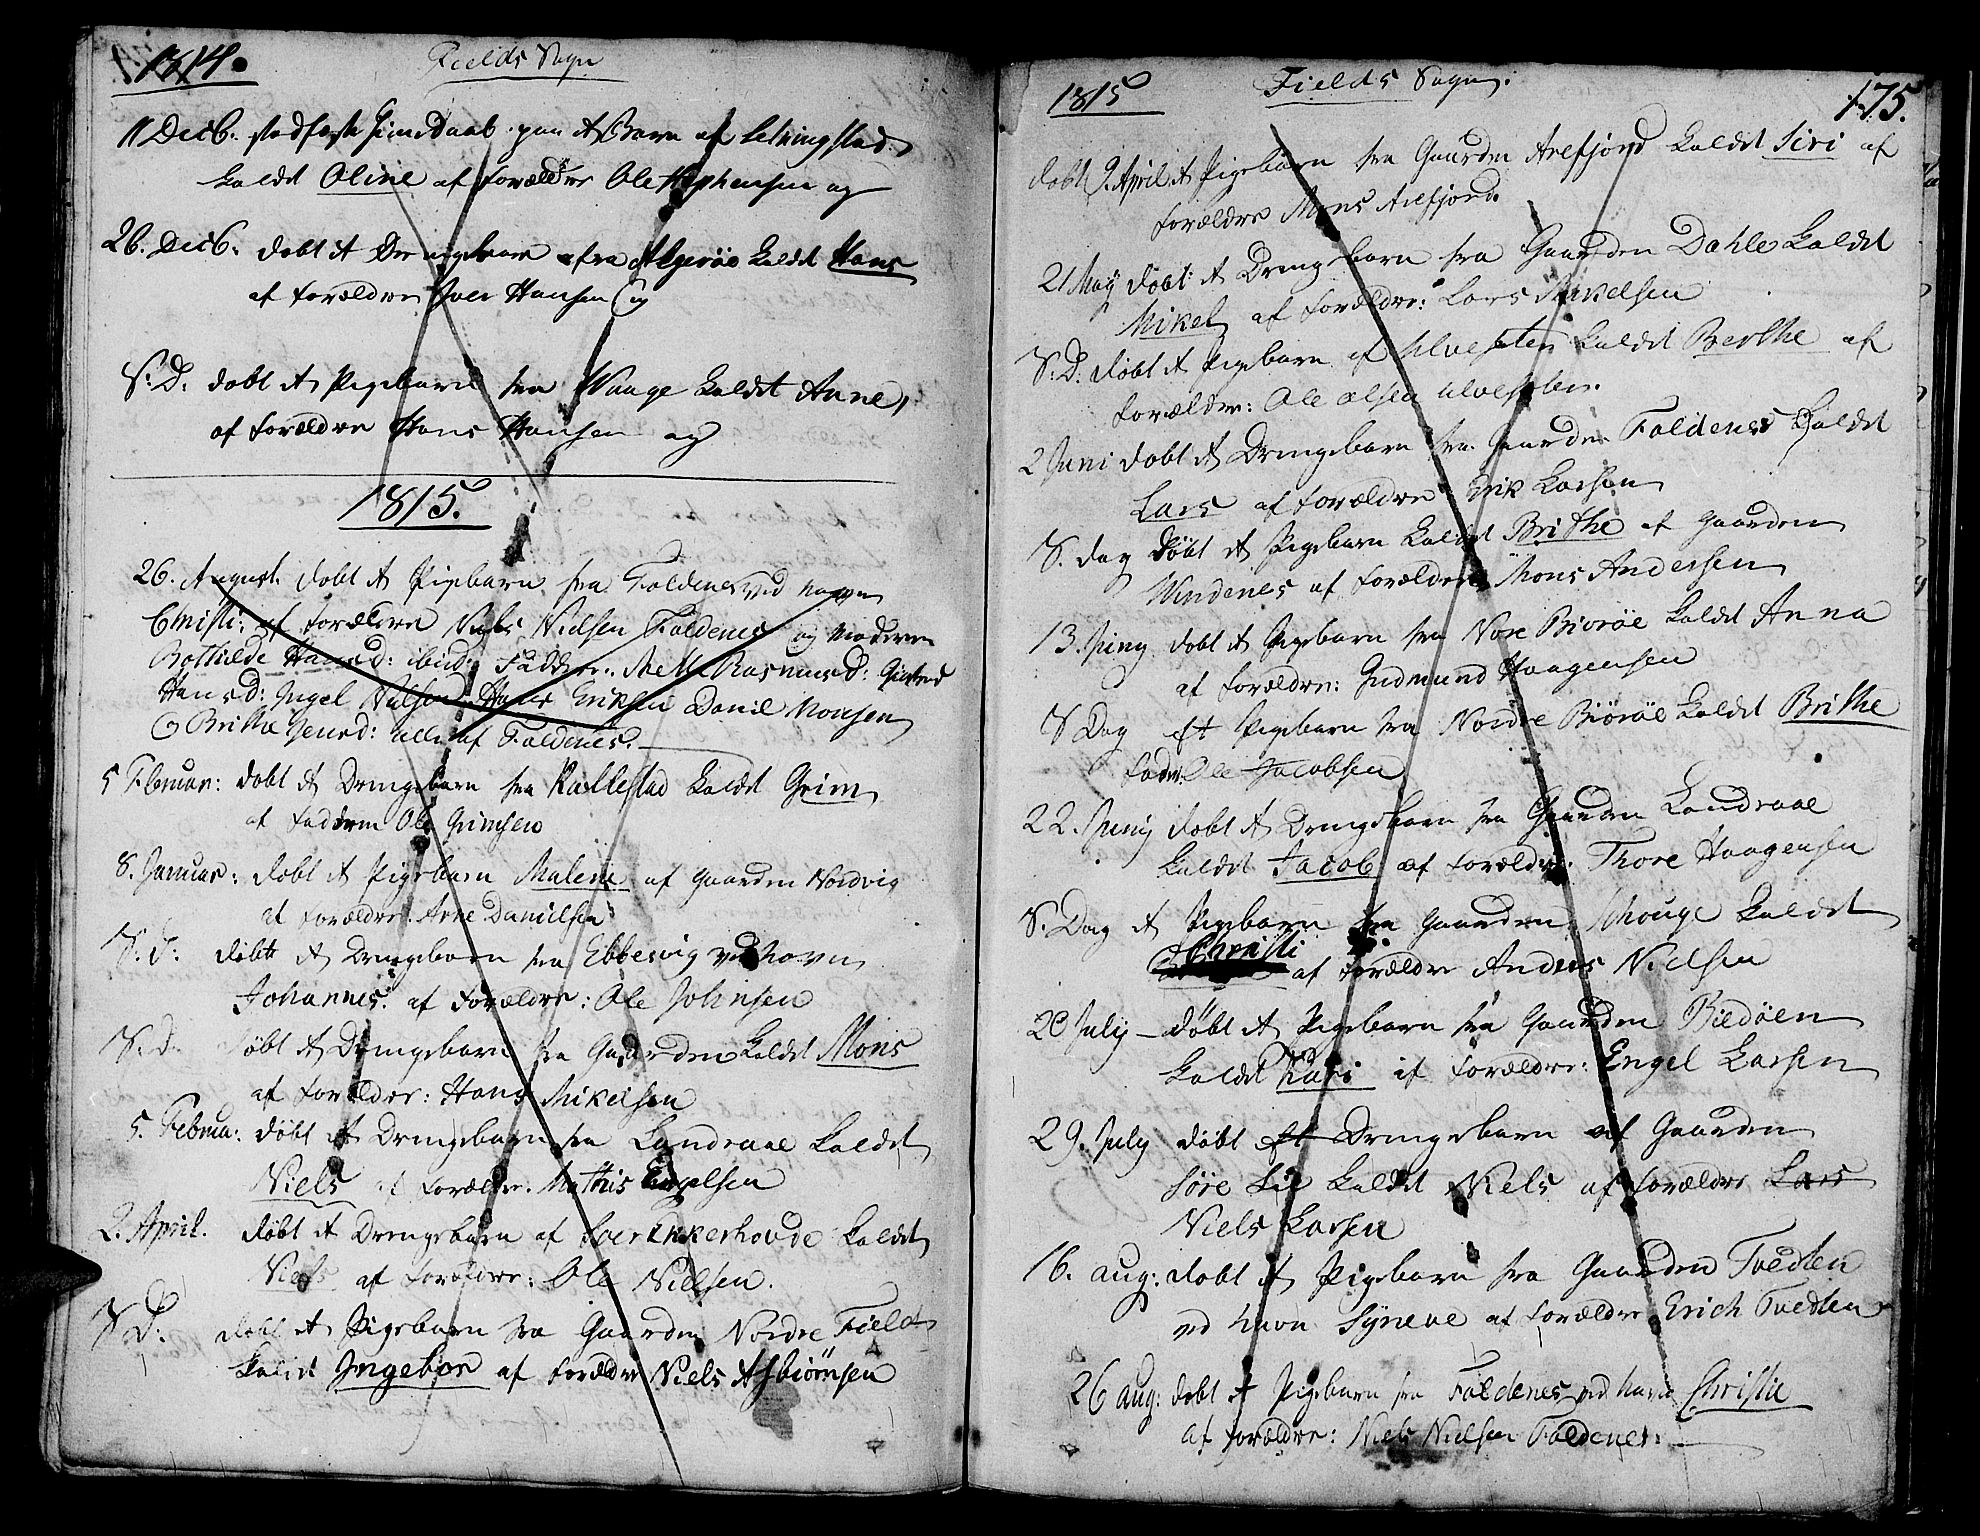 1814.
Fields Sogn
11 Decb: stadfæste hiemedaab paa et Barn af Letningstad
kaldt Oline af Forældre Ole Stephensen og
26. Decb: døbt et Drengebarn fra Algerøe kaldt Hans
af Forældre Iver Hansen og
S: D: døbt et Pigebarn fra Waage kaldt Anne,
af Forældre Hans Hansen og
1815.
26. August. døbt et Pigebarn fra Foldenes ved navn
Christi: af Forældre Niels Nielsen Foldenes og Moderen
Bothilde Hansd: ibid: Faddere: Mette Rasmusd:
Hansd: Ingel Nilsen Hans Eriksen Daniel Monsen
og Brithe Jensd: alle af Foldenes.
5 Februar: døbt et Drengebarn fra Kallestad kaldt Grim
af Faderen Ole Grimsen
8. Januar: døbt et Pigebarn Malene af Gaarden Nordvig
af Forældre: Arne Danielsen
S: d: døbt et Drengebarn fra Ebbesvig ved Navn
Johannes: af Forældre: Ole Johnsen
S: d. døbt et Drengebarn fra Gaarden kaldt Mons
af Forældre: Hans Mikelsen
5. Februar: døbt et Drengebarn fra Landraae kaldt
Niels af Forældre. Mathis Engelsen
2. April. døbt et Drengebarn af kaldt
Niels af Forældre: Ole Nielsen.
S D: døbt et Pigebarn fra Gaarden Nordre Field
kaldt Ingebor af Forældre Niels Asbiørnsen
1815
Fields Sogn:
175.
døbt 9. April et Pigebarn fra Gaarden Arefjord kaldt Siri af
Forældre Mons Arefjord.
21 May døbt: et Drengebarn fra Gaarden Dahle kaldt
Mikel af Forældre: Lars Mikelsen
S: D: døbt et Pigebarn af Ulveseter kaldt Berthe af
Forældre: Ole Olsen Ulveseter.
2 Juni døbt et Drengebarn fra Gaarden Foldenes kaldt
Lars af Forældre Erik Larsen
S. dag døbt et Pigebarn kaldt Brithe af Gaarden
Windenes af Forældre Mons Andersen
13. Juny døbt et Pigebarn fra Nore Biorøe kaldt Anna
af Forældre: Gudmund Haagensen
S Dag et Pigebarn fra Nordre Biørøe kaldt Brithe
Fader Ole Jacobsen
22. Juny døbt et Drengebarn fra Gaarden Landraae
kaldt Jacob af Forældre: Thore Haagensen
S. Dag et Pigebarn fra Gaarden Schouge kaldt
Christi af Forældre Anders Nielsen
20 July – døbt et Pigebarn fra Gaarden Bildøen
kaldt Kari af Forældre: Engel Larsen
29. July døbt et Drengebarn af Gaarden
Søre Lie kaldt Niels af Forældre Lars
Niels Larsen
16. aug: døbt et Pigebarn fra Gaarden Tvedten
ved navn Syneve af Forældre Erich Tvedten
26 aug: døbt et Pigebarn fra Foldenes ved navn Christie
af Forældre: Niels Nielsen Foldenes: